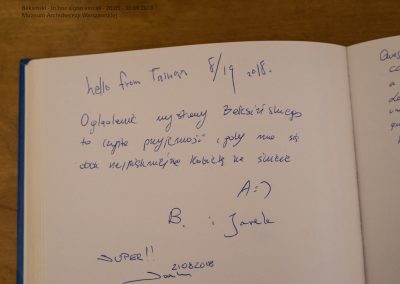 Beksiński - In hoc signo vinces - 20.05 - 30.09.2018
Muzeum Archidiecezji Warszawskiej
hello from Taiwan 8/19 2018.
Oglądanie wystawy Beksińskiego
to czysta przyjemność, gdy ma się
obok najpiękniejszą kobietę na świecie
A=)
B. i Jarek
SUPER!!
21082018